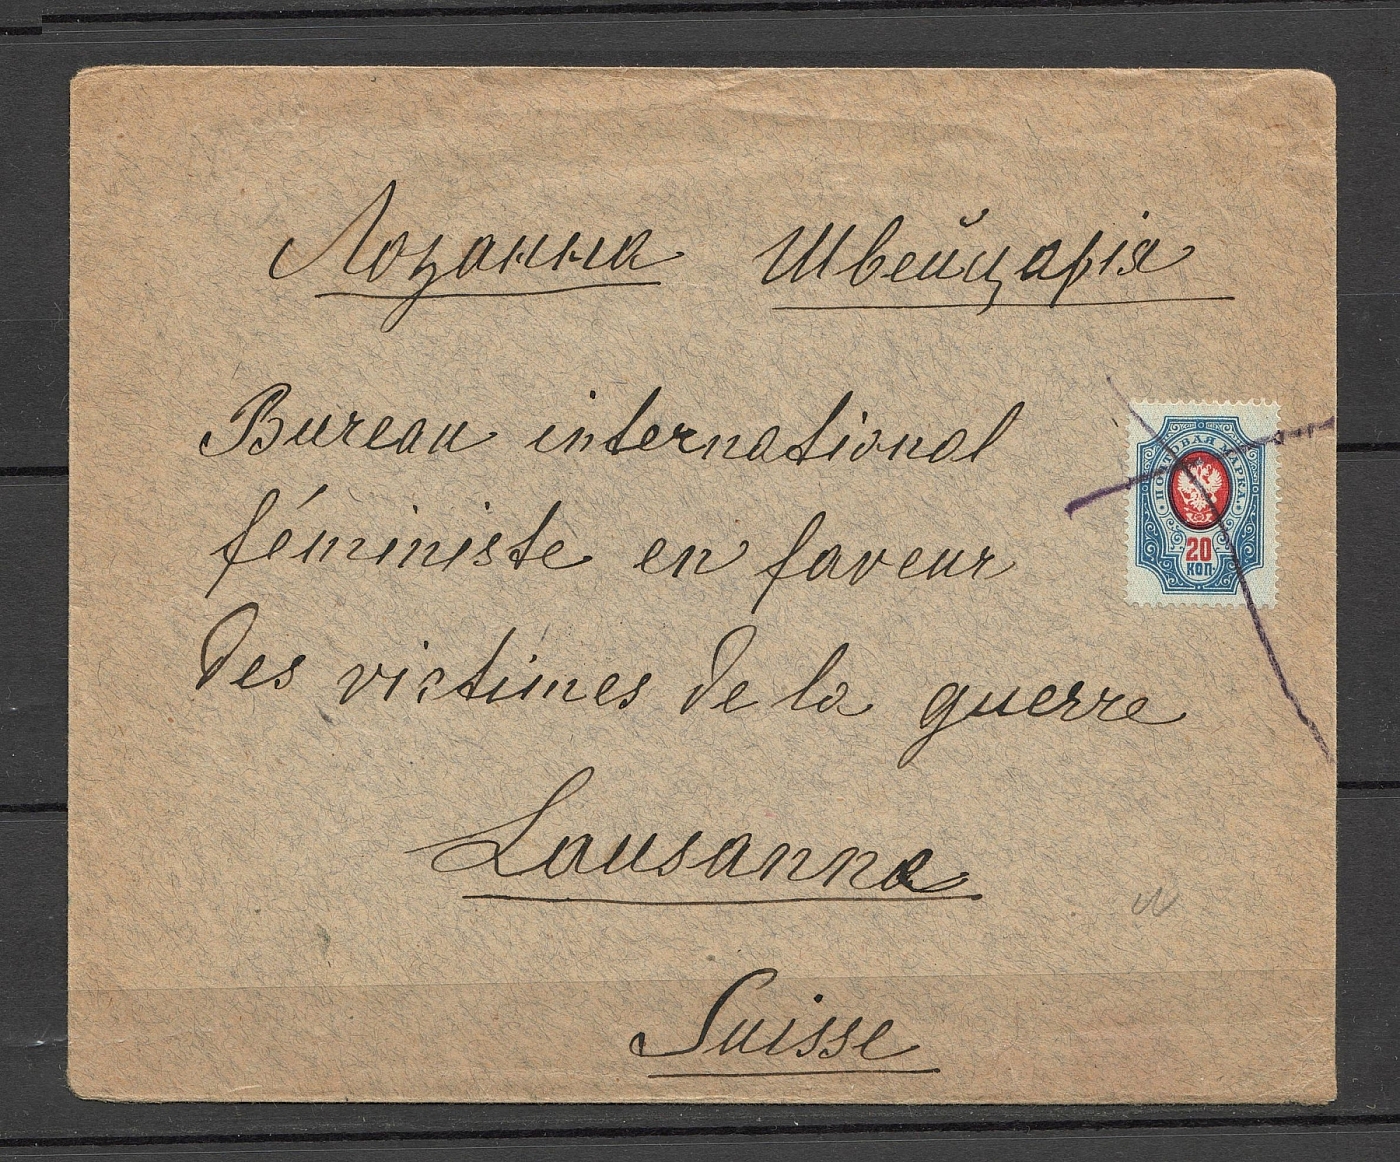 Лозанна Швейцарія
Bureau international
féministe en faveur
des victimes de la guerre
Lausanne
Suisse
ПОЧТОВАЯ МАРКА
20
КОП